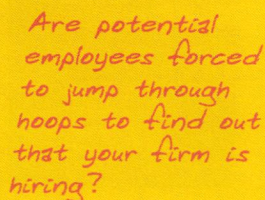 Are potential
employees forced
to jump through
hoops to find out
that your firm is
hiring?